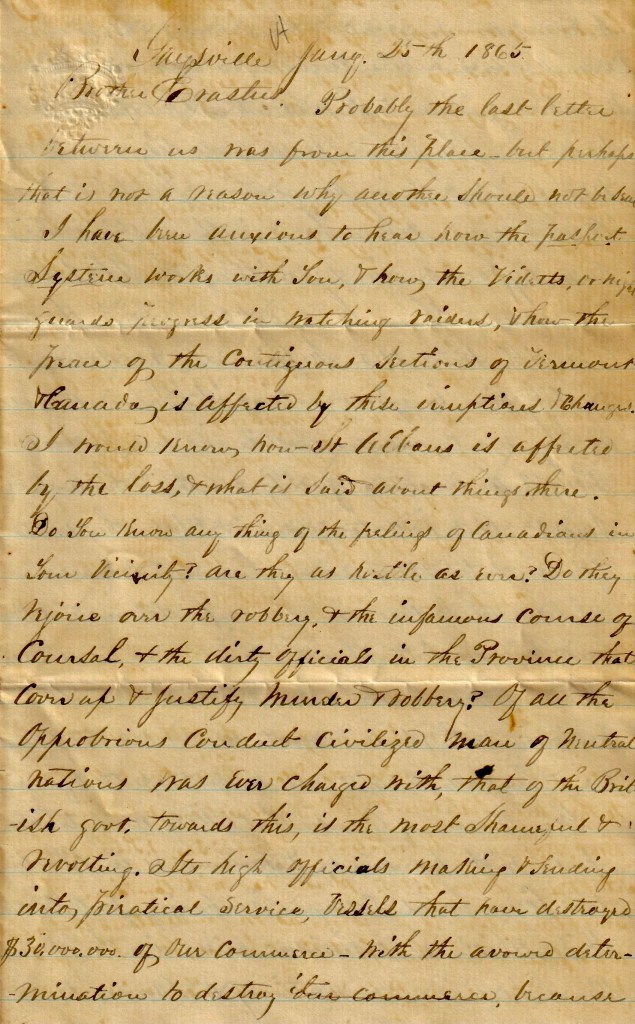 Gaysville Jany. 25th 1865
Brother Erastus. Probably the last letter
between us was from this place - but perhaps
that is not a reason why another should not be sent
I have been anxious to hear how the passport
System works with You, & how the Videtts, or night
guards progress in watching raiders, & how the
peace of the Contiguous Sections of Vermont
& Canada, is affected by these irruptions & Changes.
I would know how St Albans is affected
by the loss, & what is said about things there.
Do You know any thing of the feelings of Canadians in
Your Vicinity? are they as hostile as ever? Do they
rejoice over the robbery, & the infamous course of
Coursal, & the dirty officials in the Province that
Cover up & Justify Murder & robbery? Of all the
Opprobrious Conduct Civilized man of Neutral
nations was Ever Charged with, that of the Brit
-ish govt. towards this, is the most Shameful &
revolting. Its high officials making & Sending
into, piratical Service, Vessels that have destroyed
$30,000,000. of our Commerce - with the avowed deter-
-mination to destroy our commerce, because